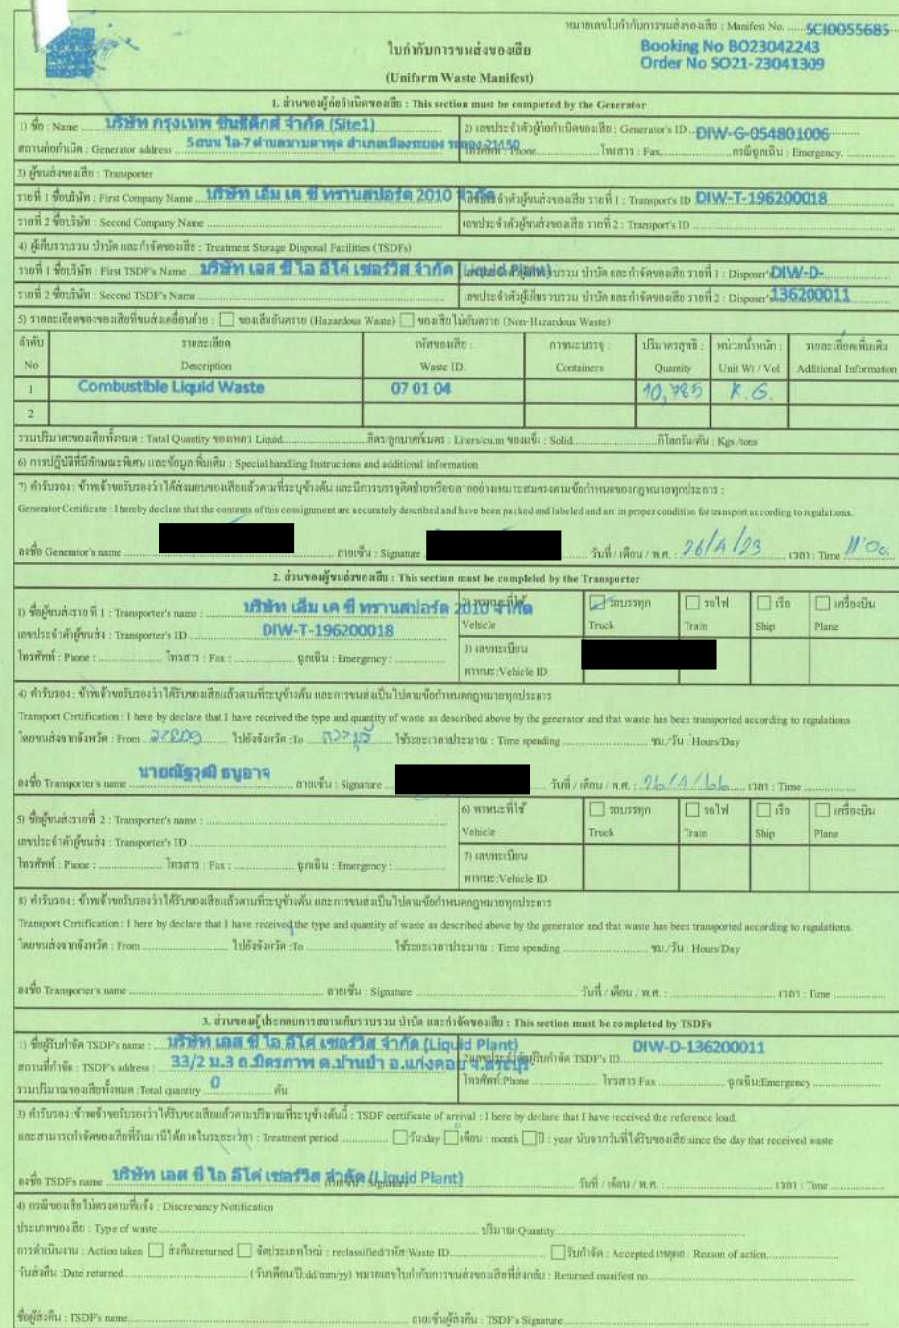 หมายเลขใบกำกับการขนส่งของเสีย : Manifest No. SCI0055685
ใบกำกับการขนส่งของเสีย
Booking No BO23042243
Order No SO21-23041309
(Uniform Waste Manifest)
1. ส่วนของผู้ก่อกำเนิดของเสีย : This section must be completed by the Generator
1) ชื่อ : Name บริษัท กรุงเทพ ซินธิติกส์ จำกัด (Site1) 2) เลขประจำตัวผู้ก่อกำเนิดของเสีย : Generator's ID DIW-G-054801006
สถานก่อกำเนิด : Generator address 5 ถนน ไอ-7 ตำบลมาบตาพุด อำเภอเมืองระยอง ระยอง 21150 Phone โทรสาร : Fax กรณีฉุกเฉิน : Emergency.
3) ผู้ขนส่งของเสีย : Transporter
รายที่ 1 ชื่อบริษัท : First Company Name บริษัท เอ็ม เค ซี ทรานสปอร์ต 2010 จำกัด เลขประจำตัวผู้ขนส่งของเสีย รายที่ 1 : Transport's ID DIW-T-196200018
รายที่ 2 ชื่อบริษัท : Second Company Name เลขประจำตัวผู้ขนส่งของเสีย รายที่ 2 : Transport's ID
4) ผู้เก็บรวบรวม บำบัด และกำจัดของเสีย : Treatment Storage Disposal Facilities (TSDFs)
รายที่ 1 ชื่อบริษัท : First TSDF's Name บริษัท เอส ซี ไอ อีโค่ เซอร์วิส จำกัด (Liquid Plant) รวบรวม บำบัด และกำจัดของเสีย รายที่ 1 : Disposer's DIW-D-
รายที่ 2 ชื่อบริษัท : Second TSDF's Name เลขประจำตัวผู้เก็บรวบรวม บำบัด และกำจัดของเสีย รายที่ 2 : Disposer's 136200011
5) รายละเอียดของของเสียที่ขนส่งเคลื่อนย้าย : ของเสียอันตราย (Hazardous Waste) ของเสียไม่อันตราย (Non-Hazardous Waste)
ลำดับ รายละเอียด รหัสของเสีย : ภาชนะบรรจุ : ปริมาตรสุทธิ : หน่วยน้ำหนัก : รายละเอียดเพิ่มเติม
No Description Waste ID. Containers Quantity Unit Wt / Vol Additional Information
1 Combustible Liquid Waste 07 01 04 10,785 K.G.
2
รวมปริมาตรของเสียทั้งหมด : Total Quantity ของเหลว Liquid ลิตร/ลูกบาศก์เมตร : Liters/cu.m ของแข็ง : Solid กิโลกรัม/ตัน : Kgs /tons
6) การปฏิบัติที่มีลักษณะพิเศษ และข้อมูล เพิ่มเติม : Special handling Instructions and additional information
7) คำรับรอง : ข้าพเจ้าขอรับรองว่าได้ส่งมอบของเสียแล้วตามที่ระบุข้างต้น และมีการบรรจุติดป้ายหรือฉลากอย่างเหมาะสมตรงตามข้อกำหนดของกฎหมายทุกประการ :
Generator Certificate : I hereby declare that the contents of this consignment are accurately described and have been packed and labeled and are in proper condition for transport according to regulations.
ลงชื่อ Generator's name ลายเซ็น : Signature วันที่ / เดือน / พ.ศ. : 26/4/23 เวลา : Time 11:00
2. ส่วนของผู้ขนส่งของเสีย : This section must be completed by the Transporter
1) ชื่อผู้ขนส่งรายที่ 1 : Transporter's name : บริษัท เอ็ม เค ซี ทรานสปอร์ต 2010 จำกัด
Vehicle
รถบรรทุก Truck รถไฟ Train เรือ Ship เครื่องบิน Plane
เลขประจำตัวผู้ขนส่ง : Transporter's ID DIW-T-196200018
โทรศัพท์ : Phone : โทรสาร : Fax : ฉุกเฉิน : Emergency :
3) เลขทะเบียน
พาหนะ:Vehicle ID
4) คำรับรอง : ข้าพเจ้าขอรับรองว่าได้รับของเสียแล้วตามที่ระบุข้างต้น และการขนส่งเป็นไปตามข้อกำหนดกฎหมายทุกประการ
Transport Certification : I here by declare that I have received the type and quantity of waste as described above by the generator and that waste has been transported according to regulations
โดยขนส่งจากจังหวัด : From ระยอง ไปยังจังหวัด :To สระบุรี ใช้ระยะเวลาประมาณ : Time spending ชม./วัน : Hours/Day
ลงชื่อ Transporter's name นายณัฐวุฒิ ธนูอาจ ลายเซ็น : Signature วันที่ / เดือน / พ.ศ. : 26/4/66 เวลา : Time
5) ชื่อผู้ขนส่งรายที่ 2 : Transporter's name :
6) พาหนะที่ใช้
Vehicle
รถบรรทุก Truck รถไฟ Train เรือ Ship เครื่องบิน Plane
เลขประจำตัวผู้ขนส่ง : Transporter's ID
โทรศัพท์ : Phone : โทรสาร : Fax : ฉุกเฉิน : Emergency :
7) เลขทะเบียน
พาหนะ:Vehicle ID
8) คำรับรอง : ข้าพเจ้าขอรับรองว่าได้รับของเสียแล้วตามที่ระบุข้างต้น และการขนส่งเป็นไปตามข้อกำหนดกฎหมายทุกประการ
Transport Certification : I here by declare that I have received the type and quantity of waste as described above by the generator and that waste has been transported according to regulations.
โดยขนส่งจากจังหวัด : From ไปยังจังหวัด :To ใช้ระยะเวลาประมาณ : Time spending ชม./วัน : Hours/Day
ลงชื่อ Transporter's name ลายเซ็น : Signature วันที่ / เดือน / พ.ศ. : เวลา : Time
3. ส่วนของผู้ประกอบการสถานเก็บรวบรวม บำบัด และกำจัดของเสีย : This section must be completed by TSDFs
1) ชื่อผู้รับกำจัด TSDF's name : บริษัท เอส ซี ไอ อีโค่ เซอร์วิส จำกัด (Liquid Plant) DIW-D-136200011
สถานที่กำจัด : TSDF's address : 33/2 ม.3 ถ.มิตรภาพ ต.บ้านป่า อ.แก่งคอย จ.สระบุรี ผู้รับกำจัด TSDF's ID.
รวมปริมาณของเสียทั้งหมด :Total quantity 0 ตัน โทรศัพท์:Phone โทรสาร Fax ฉุกเฉิน:Emergency
3) คำรับรอง :ข้าพเจ้าขอรับรองว่าได้รับของเสียแล้วตามปริมาณที่ระบุข้างต้นนี้ : TSDF certificate of arrival : I here by declare that I have received the reference load.
และสามารถกำจัดของเสียที่รับมานี้ได้ภายในระยะเวลา : Treatment period วัน:day เดือน : month ปี : year นับจากวันที่ได้รับของเสีย since the day that received waste
ลงชื่อ TSDF's name บริษัท เอส ซี ไอ อีโค่ เซอร์วิส จำกัด (Liquid Plant) วันที่ / เดือน / พ.ศ. : เวลา : Time
4) กรณีของเสียไม่ตรงตามที่แจ้ง : Discrepancy Notification
ประเภทของเสีย : Type of waste ปริมาณ:Quantity
การดำเนินงาน : Action taken ส่งคืน:returned จัดประเภทใหม่ : reclassified/รหัส:Waste ID รับกำจัด : Accepted เหตุผล : Reason of action
วันส่งคืน :Date returned (วัน/เดือน/ปี:dd/mm/yy) หมายเลขใบกำกับการขนส่งของเสียที่ส่งกลับ : Returned manifest no
ชื่อผู้ส่งคืน : TSDF's name ลายเซ็นผู้ส่งคืน : TSDF's Signature